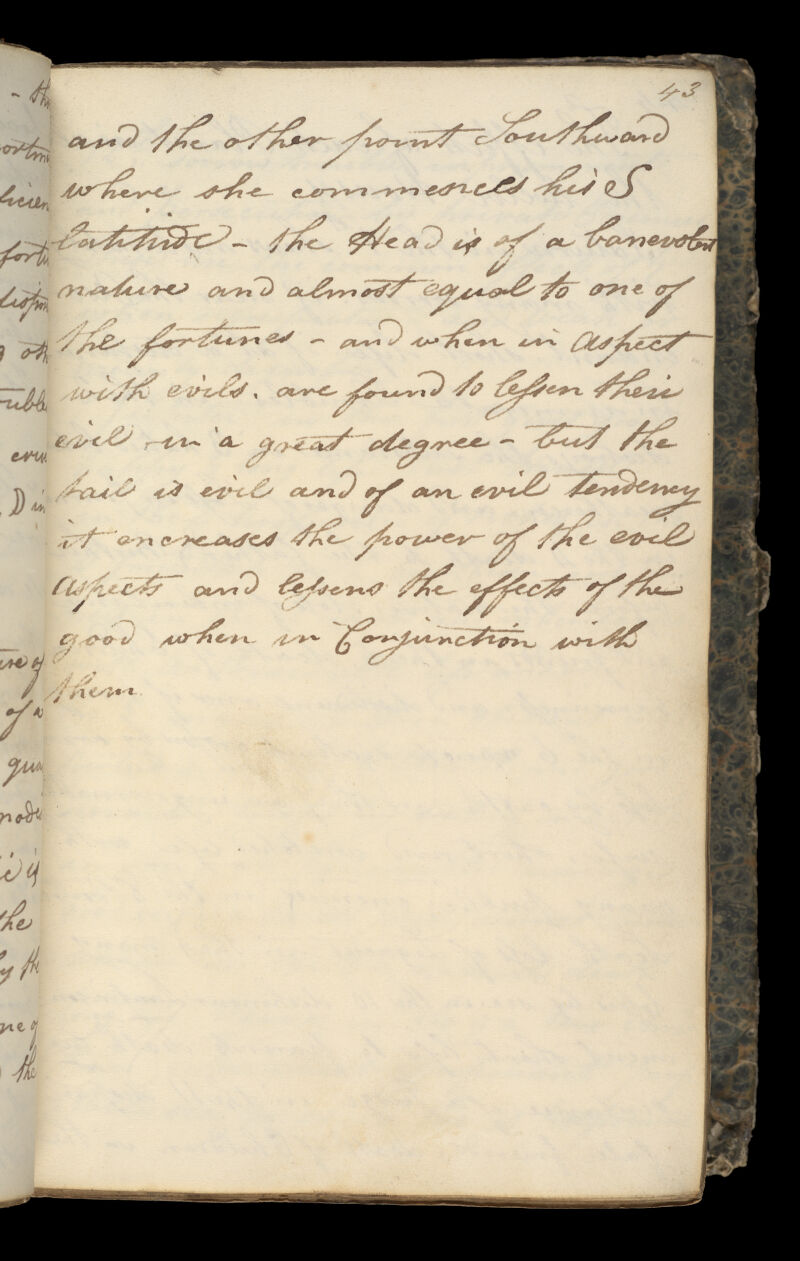 43
and the other point Southward
where she commences his S
latitude - the Head is of a banevolent
nature and almost equal to one of
the fortunes - and when in aspect
with evils. are found to lessen their
evil in a great degree - but the
tail is evil and of an evil tendency
it encreases the power of the evil
aspects and lessens the effects of the
good when in Conjunction with
them